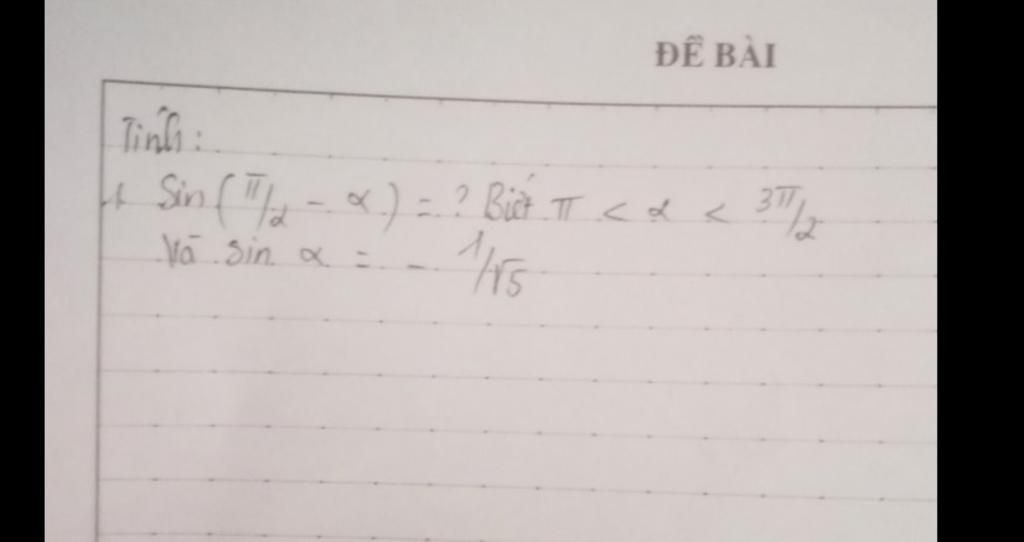 ĐỀ BÀI
Tính:
+ Sin(π/2 - α) = ? Biết π < α < 3π/2
Và sin α = - 1/√5